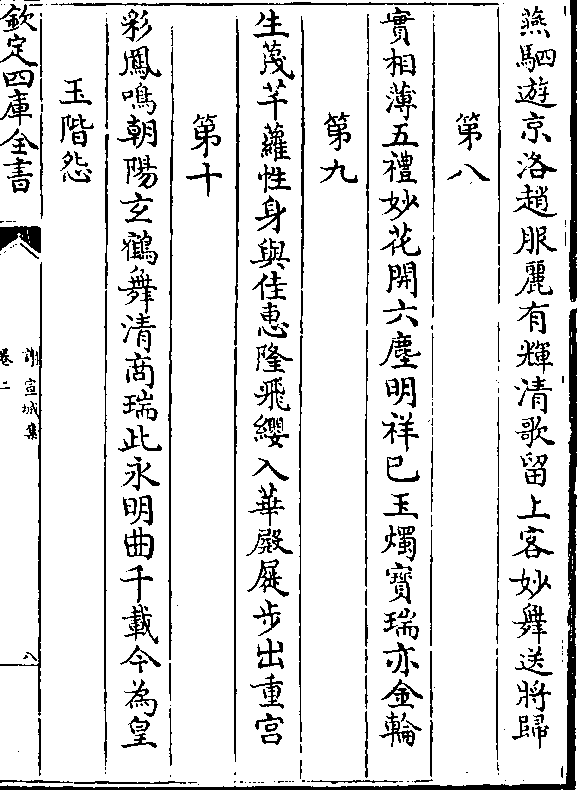 燕駟遊京洛趙服麗有輝清歌留上客妙舞送將歸
第八
實相薄五禮妙花開六塵明祥已玉燭寶瑞亦金輪
第九
生蔑芊蘿性身與佳惠隆飛纓入華殿屣步出重宫
第十
彩鳳鳴朝陽玄鶴舞清商瑞此永明曲千載今為皇
玉階怨
欽定四庫全書
謝宣城集
卷二
八